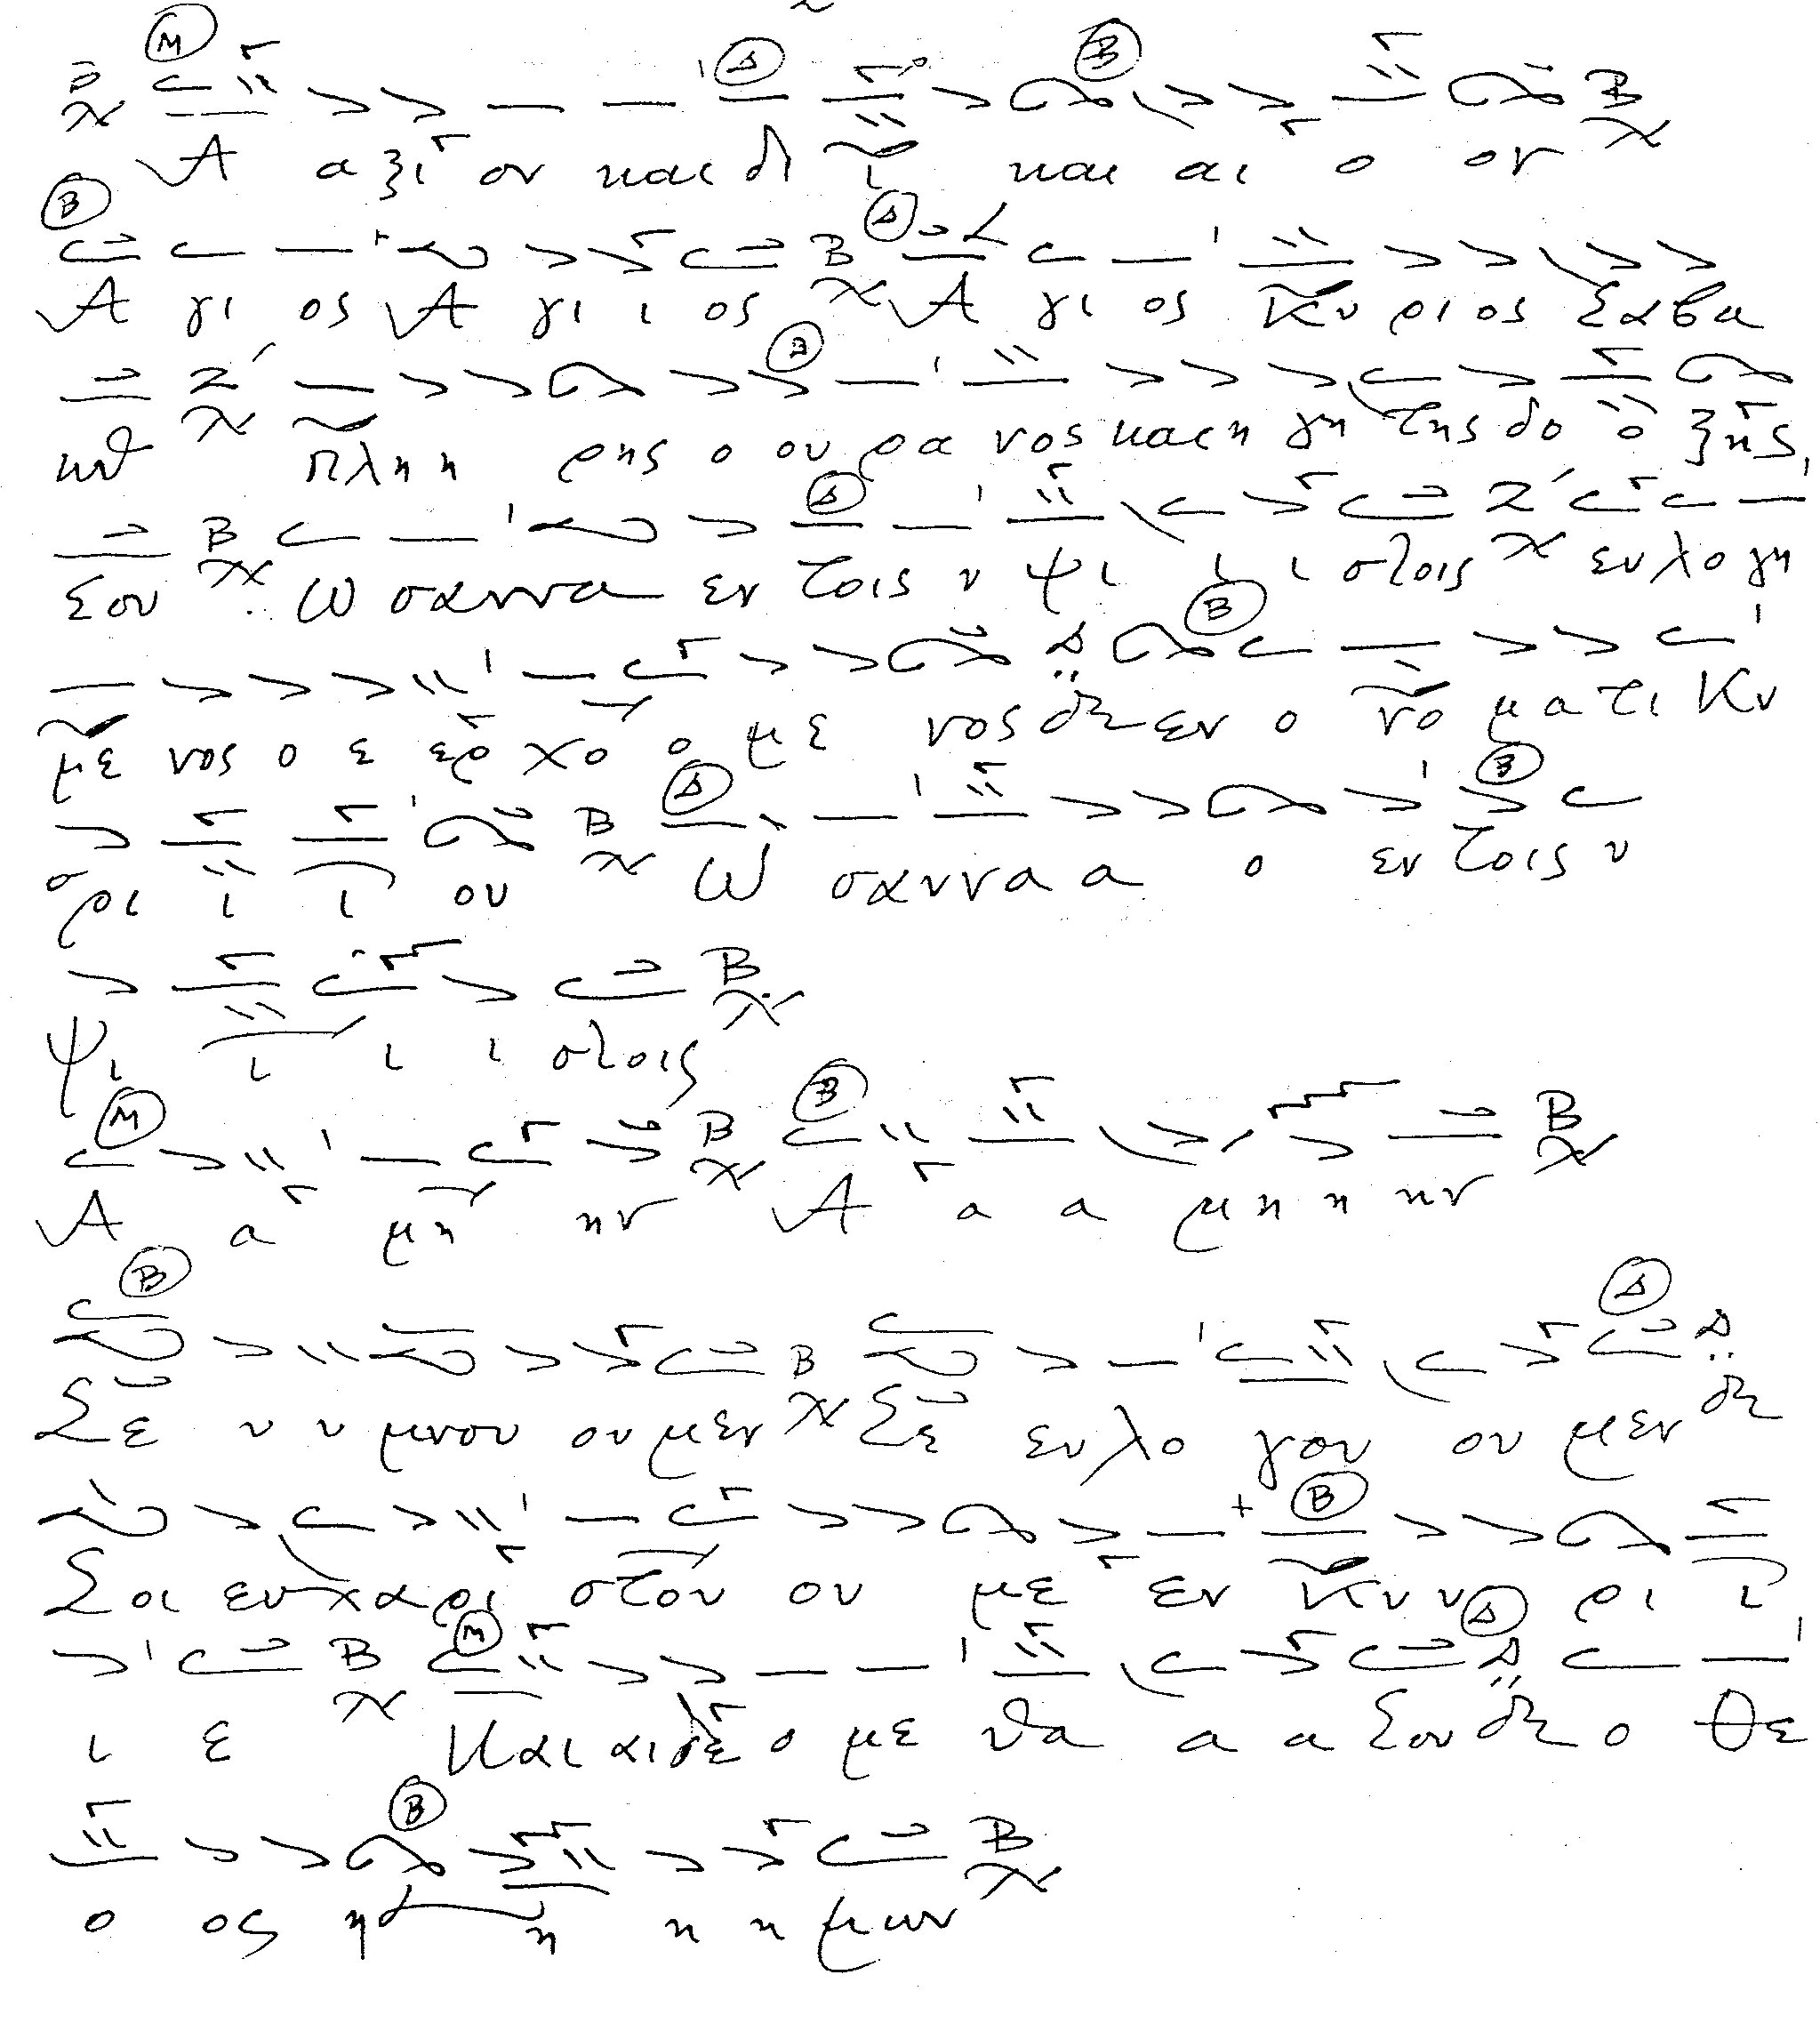 Α αξι ον και δι ι και αι ο ον
Α γι ος Α γι ι ος Α γι ος Κυ ρι ος Σαβα
ωθ πλη η ρης ο ου ρα νος και η γη της δο ο ξης
Σου Ω σαννα εν τοις υ ψι ι ι στοις ευλογη
με νος ο ε ερ χο ο με νος εν ο νο μα τι Κυ
ρι ι ι ου Ω σαννα α ο εν τοις υ
ψι ι ι ι στοις
Α α μη ην Α α α μη η ην
Σε υ υ μνου ου μεν Σε ευλο γου ου μεν
Σοι ευχαρι στου ου με εν Κυ υ ρι ι
ι ε Και αι δε ο με θα α α Σου ο Θε
ο ος η η η η μων